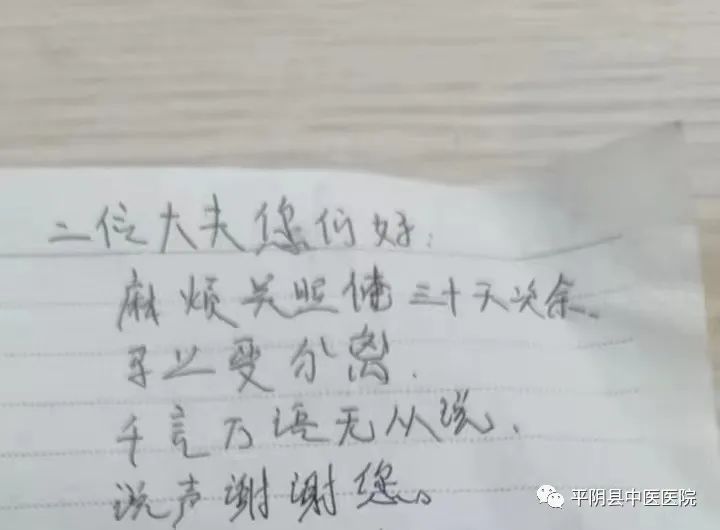 二位大夫您们好:
麻烦关照俺三十天次余、
要分离.
千言万语无从说、
说声谢谢您。
平阴县中医医院